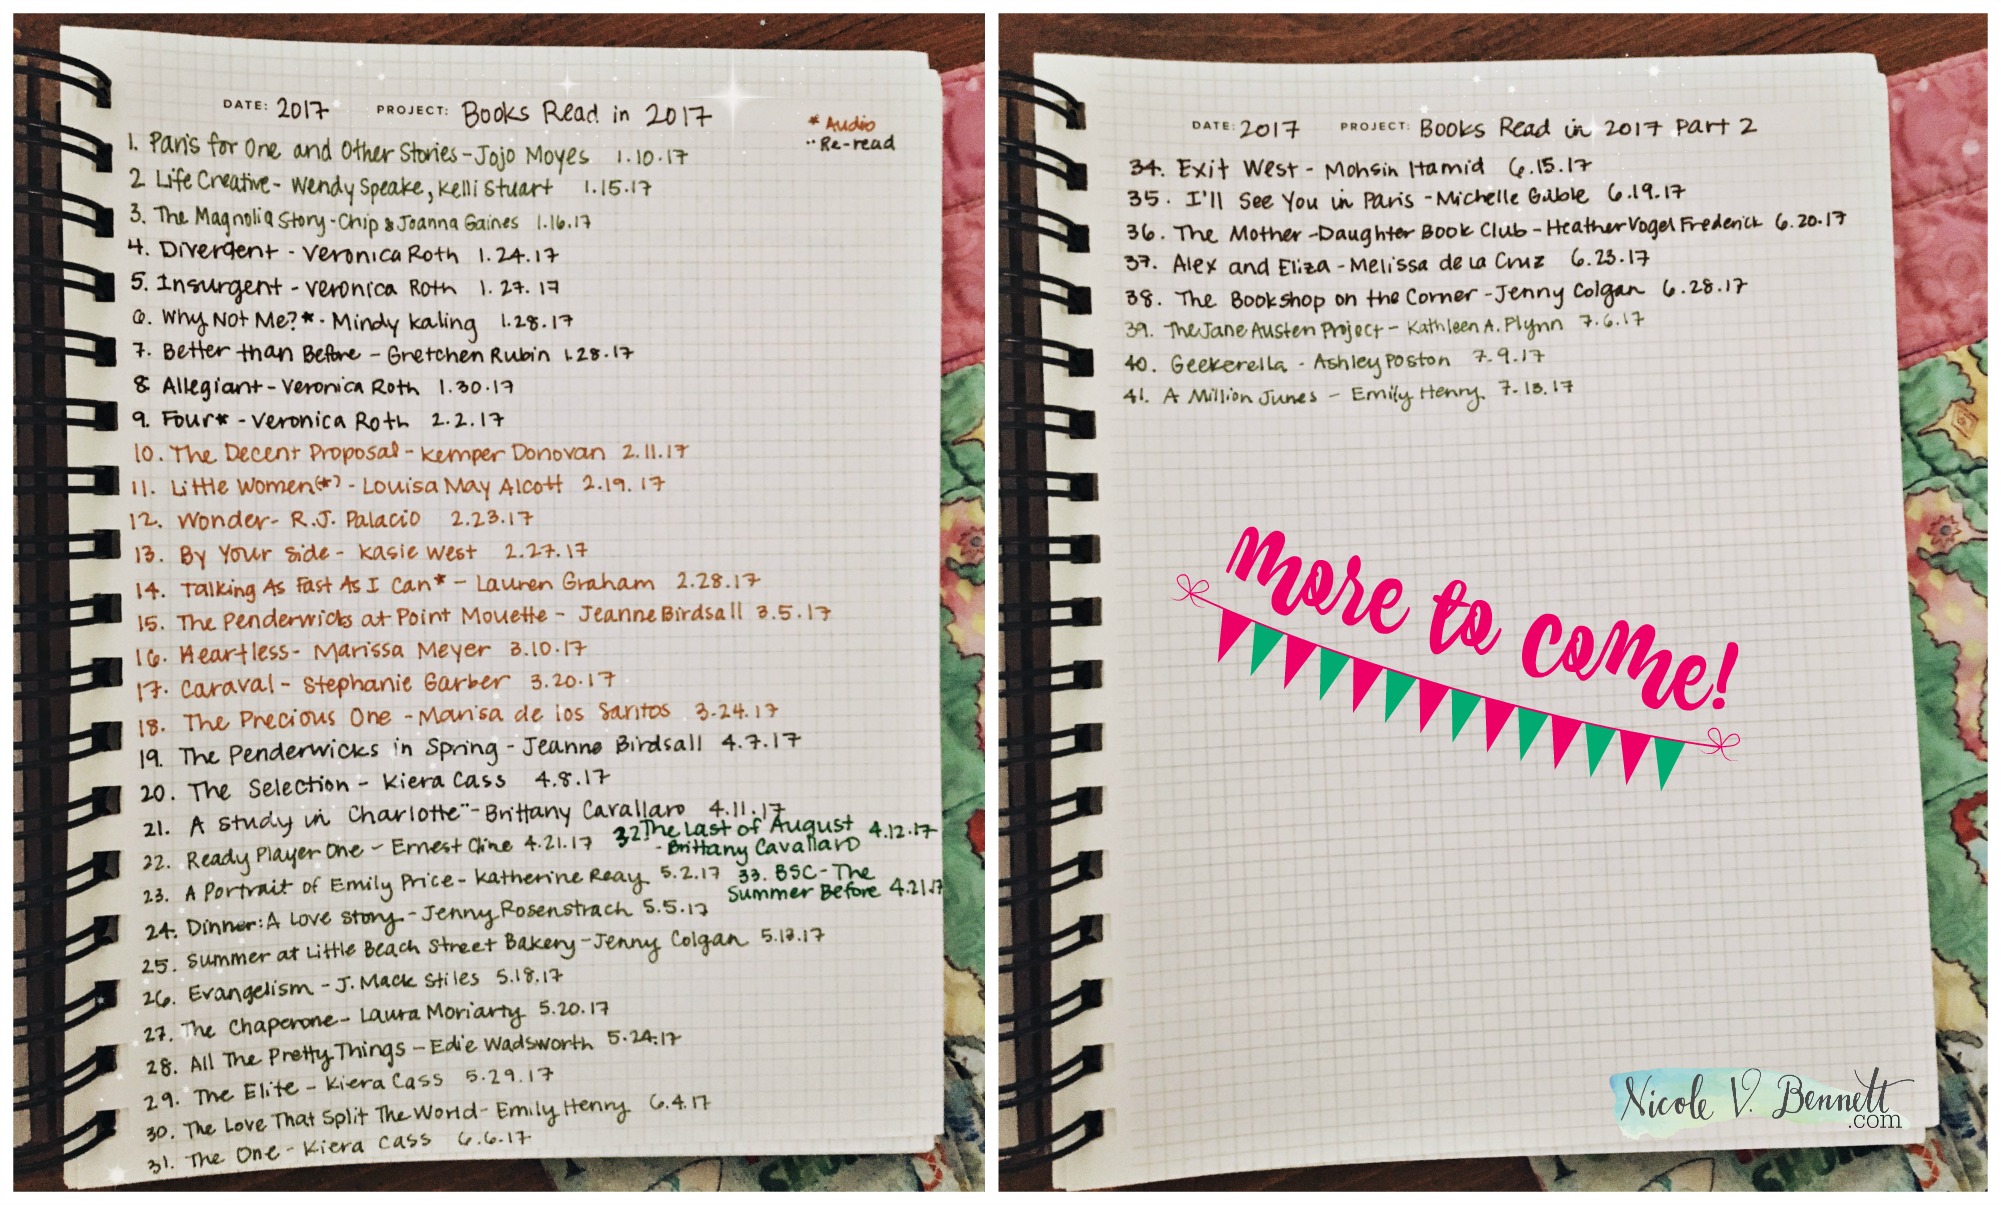 DATE: 2017 PROJECT: Books Read in 2017
* Audio
¨ Re-read
1. Paris for One and Other Stories - Jojo Moyes 1.10.17
2 Life Creative - Wendy Speake, Kelli Stuart 1.15.17
3. The Magnolia Story - Chip & Joanna Gaines 1.16.17
4. Divergent - Veronica Roth 1.24.17
5. Insurgent - Veronica Roth 1.27.17
6. Why Not Me?* - Mindy Kaling 1.28.17
7. Better than Before - Gretchen Rubin 1.28.17
8. Allegiant - Veronica Roth 1.30.17
9. Four* - Veronica Roth 2.2.17
10. The Decent Proposal - Kemper Donovan 2.11.17
11. Little Women(*) - Louisa May Alcott 2.19.17
12. Wonder - R.J. Palacio 2.23.17
13. By Your Side - Kasie West 2.27.17
14. Talking As Fast As I Can* - Lauren Graham 2.28.17
15. The Penderwicks at Point Mouette - Jeanne Birdsall 3.5.17
16. Heartless - Marissa Meyer 3.10.17
17. Caraval - Stephanie Garber 3.20.17
18. The Precious One - Marisa de los Santos 3.24.17
19. The Penderwicks in Spring - Jeanne Birdsall 4.7.17
20. The Selection - Kiera Cass 4.8.17
21. A Study in Charlotte¨ - Brittany Cavallaro 4.11.17
22. Ready Player One - Ernest Cline 4.21.17
32 The Last of August 4.12.17
- Brittany Cavallaro
23. A Portrait of Emily Price - Katherine Reay 5.2.17
33. BSC - The
Summer Before 4.21.17
24. Dinner: A Love Story - Jenny Rosenstrach 5.5.17
25. Summer at Little Beach Street Bakery - Jenny Colgan 5.13.17
26. Evangelism - J. Mack Stiles 5.18.17
27. The Chaperone - Laura Moriarty 5.20.17
28. All The Pretty Things - Edie Wadsworth 5.24.17
29. The Elite - Kiera Cass 5.29.17
30. The Love That Split The World - Emily Henry 6.4.17
31. The One - Kiera Cass 6.6.17
DATE: 2017 PROJECT: Books Read in 2017 Part 2
34. Exit West - Mohsin Hamid 6.15.17
35. I'll See You in Paris - Michelle Gable 6.19.17
36. The Mother-Daughter Book Club - Heather Vogel Frederick 6.20.17
37. Alex and Eliza - Melissa de la Cruz 6.23.17
38. The Bookshop on the Corner - Jenny Colgan 6.28.17
39. The Jane Austen Project - Kathleen A. Flynn 7.6.17
40. Geekerella - Ashley Poston 7.9.17
41. A Million Junes - Emily Henry 7.13.17
more to come!
Nicole V. Bennett
.com